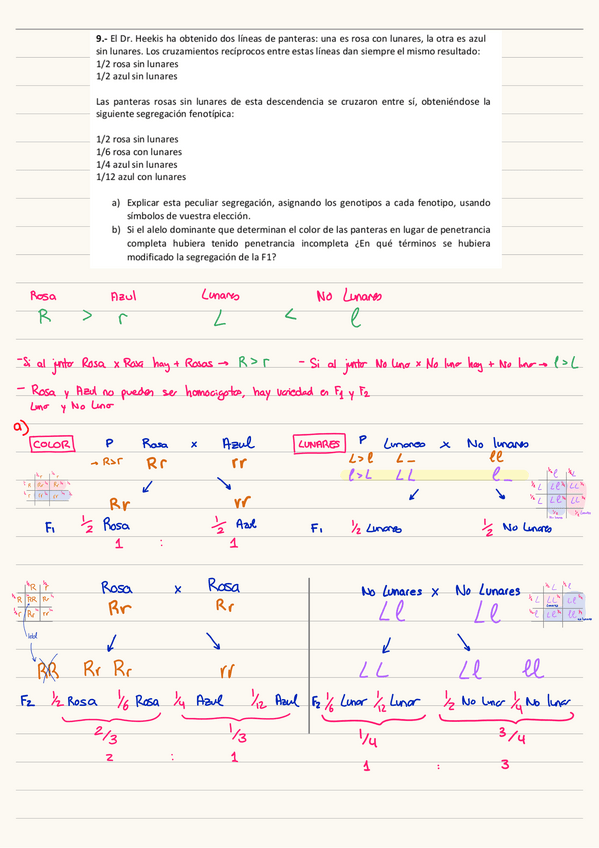 9.- El Dr. Heekis ha obtenido dos líneas de panteras: una es rosa con lunares, la otra es azul
sin lunares. Los cruzamientos recíprocos entre estas líneas dan siempre el mismo resultado:
1/2 rosa sin lunares
1/2 azul sin lunares
Las panteras rosas sin lunares de esta descendencia se cruzaron entre sí, obteniéndose la
siguiente segregación fenotípica:
1/2 rosa sin lunares
1/6 rosa con lunares
1/4 azul sin lunares
1/12 azul con lunares
a) Explicar esta peculiar segregación, asignando los genotipos a cada fenotipo, usando
símbolos de vuestra elección.
b) Si el alelo dominante que determinan el color de las panteras en lugar de penetrancia
completa hubiera tenido penetrancia incompleta ¿En qué términos se hubiera
modificado la segregación de la F1?
Rosa Azul Lunares No Lunares
R > r L < l
- Si al juntar Rosa x Rosa hay + Rosas → R > r - Si al juntar No Luno x No luno hay + No luno → l > L
- Rosa y Azul no pueden ser homocigotos, hay variedad en F1 y F2
Luno y No Luno
a)
COLOR P Rosa x Azul LUNARES P Lunares x No lunares
→ R>r Rr rr L>l L_ ll
l>L LL l_
Rr rr
F1 1/2 Rosa 1/2 Azul F1 1/2 Lunares 1/2 No Lunares
1 : 1
Rosa x Rosa No Lunares x No Lunares
Rr Rr Ll Ll
letal
RR Rr Rr rr LL Ll ll
F2 1/2 Rosa 1/6 Rosa 1/4 Azul 1/12 Azul F2 1/6 Lunar 1/12 Lunar 1/2 No lunar 1/4 No lunar
2/3 1/3 1/4 3/4
2 : 1 1 : 3